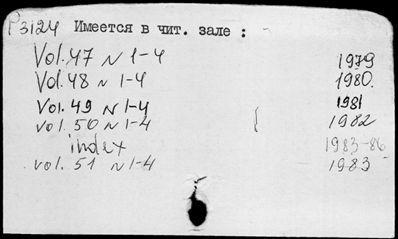 P3124 Имеется в чит. зале :
Vol. 47 N 1-4 1979
Vol. 48 N 1-4 1980.
Vol. 49 N 1-4 1981
vol. 50 N 1-4 1982
index 1983-86
vol. 51 N 1-4 1983